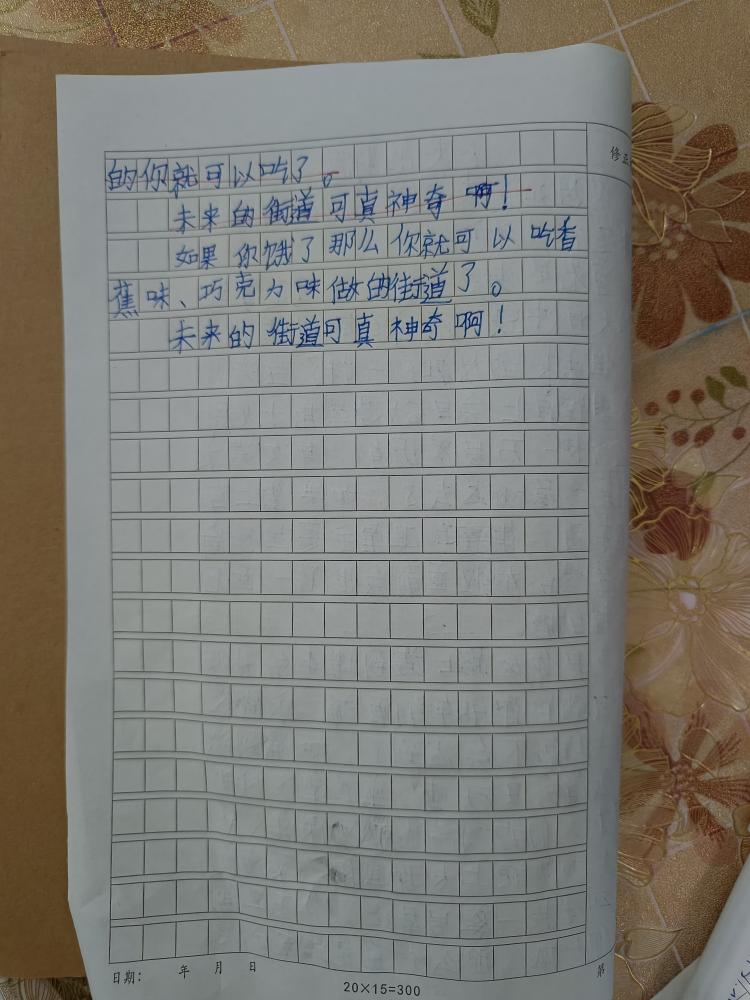 修正
的你就可以吃了。
未来的街道可真神奇啊!
如果你饿了那么你就可以吃香
蕉味、巧克力味做的街道了。
未来的街道可真神奇啊!
日期: 年 月 日
20×15=300
第